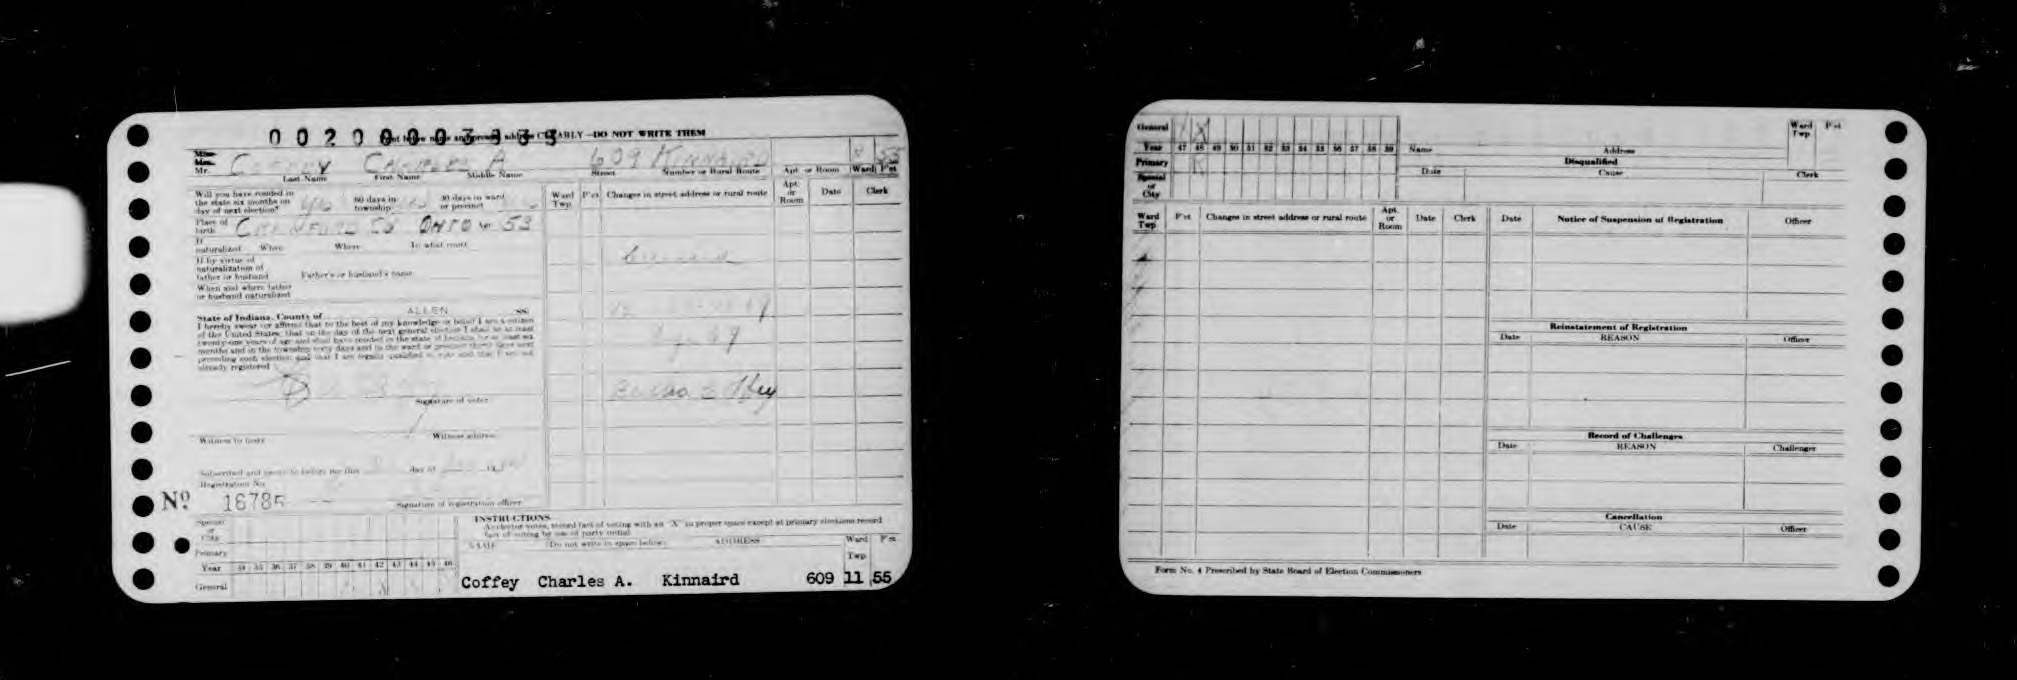 00200003939
Print below name and present address CLEARLY—DO NOT WRITE THEM
Miss
Mrs.
Mr. COFFEY CHARLES A 609 KINNAIRD 55
Last Name First Name Middle Name Street Number or Rural Route Apt. or Room Ward P'ct
Will you have resided in
the state six months on 60 days in 30 days in ward
day of next election? township or precinct
Place of
birth CRAWFORD CO OHIO Age 53
If
naturalized When Where In what court
If by virtue of
naturalization of
father or husband Father's or husband's name
When and where father
or husband naturalized
State of Indiana, County of ALLEN SS:
I hereby swear (or affirm) that to the best of my knowledge or belief I am a citizen
of the United States; that on the day of the next general election I shall be at least
twenty-one years of age and shall have resided in the state of Indiana for at least six
months and in the township sixty days and in the ward or precinct thirty days next
preceding such election and that I am legally qualified to vote and that I am not
already registered
Signature of voter
Witness to mark Witness address
Subscribed and sworn to before me this day of 19
Registration No.
Nº 16785
Signature of registration officer
Ward Twp. P'ct Changes in street address or rural route Apt. or Room Date Clerk
Special
or
City
Primary
Year 34 35 36 37 38 39 40 41 42 43 44 45 46
General
INSTRUCTIONS
As elector votes, record fact of voting with an "X" in proper space except at primary elections record
fact of voting by use of party initial
NAME (Do not write in space below) ADDRESS Ward Twp. P'ct
Coffey Charles A. Kinnaird 609 11 55
General X
Year 47 48 49 50 51 52 53 54 55 56 57 58 59
Primary R
Special
or
City
Name Address Ward Twp. P'ct
Disqualified
Date Cause Clerk
Ward Twp. P'ct Changes in street address or rural route Apt. or Room Date Clerk
Date Notice of Suspension of Registration Officer
Reinstatement of Registration
Date REASON Officer
Record of Challenges
Date REASON Challenger
Cancellation
Date CAUSE Officer
Form No. 4 Prescribed by State Board of Election Commissioners